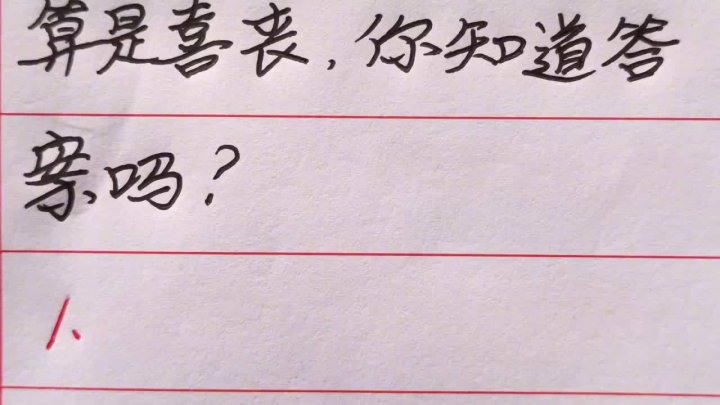 算是喜丧，你知道答
案吗？
1、